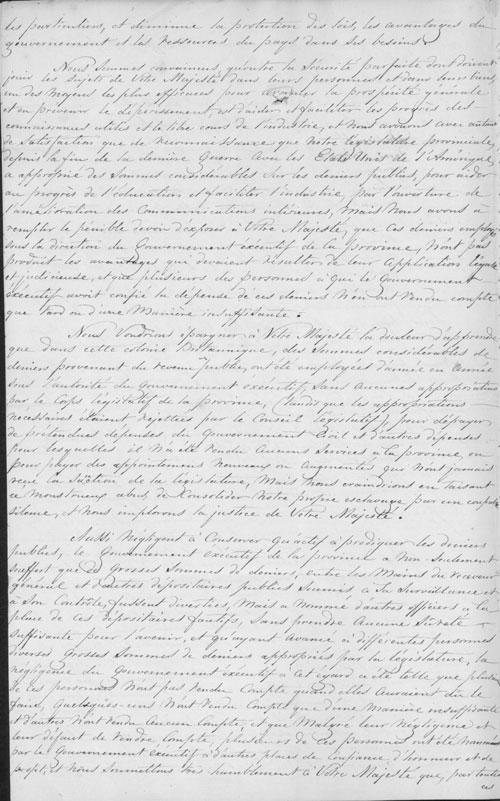 les particuliers, et diminue la protection des lois, les avantages du
gouvernement et les ressources du pays dans ses besoins.
Nous sommes convaincus, qu'outre la Sécurité parfaite dont doivent
jouir les sujets de Votre Majesté dans leurs personnes et dans leurs biens
un des moyens les plus efficaces pour avancer la prospérité générale
et en prévenir le dépérissement, est d'aider et faciliter les progrès des
connaissances utiles et le libre cours de l'industrie, et Nous avouons avec autant
de Satisfaction que de reconnaissance que Notre législature provinciale,
depuis la fin de la dernière Guerre avec les Etats Unis de l'Amérique,
a approprié des Sommes considérables Sur les deniers publics, pour aider
au progrès de l'éducation et faciliter l'industrie, par l'ouverture de
l'amélioration des Communications intérieures, Mais Nous avons à
remplir le pénible devoir d'exposer à Votre Majesté, que ces deniers employés
sous la direction du Gouvernement exécutif de la province, N'ont pas
produit les avantages qui devaient résulter de leur Application légale
et judicieuse, et que plusieurs des personnes à qui le Gouvernement
exécutif avoit confié la dépense de ces deniers N'en ont rendu compte
que tard ou d'une Manière insuffisante.
Nous Voudrions épargner à Votre Majesté la douleur d'apprendre
que dans cette colonie Britannique, des Sommes considérables de
deniers provenant du revenu public, ont été employées d'année en Année
sous l'autorité du Gouvernement exécutif, Sans Aucunes appropriations
par le Corps législatif de la province, tandis que les appropriations
nécessaires étaient rejettées par le Conseil législatif, pour défrayer
de prétendues dépenses du Gouvernement Civil et d'autres dépenses
pour lesquelles il N'a été rendu Aucuns Services à la province, ou
pour payer des appointemens Nouveaux ou Augmentés qui N'ont jamais
reçu la Sanction de la législature, Mais Nous craindrions en taisant
ce monstrueux abus, de Consolider Notre propre esclavage par un coupable
silence, et Nous implorons la justice de Votre Majesté.
Aussi Négligent à Conserver qu'actif à prodiguer les deniers
publics, le Gouvernement exécutif de la province a Non Seulement
souffert que de grosses Sommes de deniers, entre les Mains du receveur
général et d'autres dépositaires publics Soumis à Sa Surveillance et
à Son Contrôle, fussent diverties, Mais a Nommé d'autres officiers à la
place de ces dépositaires fautifs, Sans prendre Aucune Sûreté
Suffisante pour l'avenir, et qu'ayant Avancé à différentes personnes
diverses grosses Sommes de deniers appropriés par la législature, la
négligence du Gouvernement exécutif à cet égard a été telle que plusieurs
de ces personnes N'ont pas rendu Compte quand elles Auraient dû le
faire, quelques-uns N'ont rendu Compte que d'une Manière insuffisante
et d'autres N'ont rendu Aucun Compte, et que Malgré leur Négligence et
leur défaut de rendre Compte, plusieurs de ces personnes ont été nommés
par le Gouvernement exécutif à d'autres places de Confiance, d'honneur et de
profit, et Nous Soumettons très humblement à Votre Majesté que, par toutes
ces